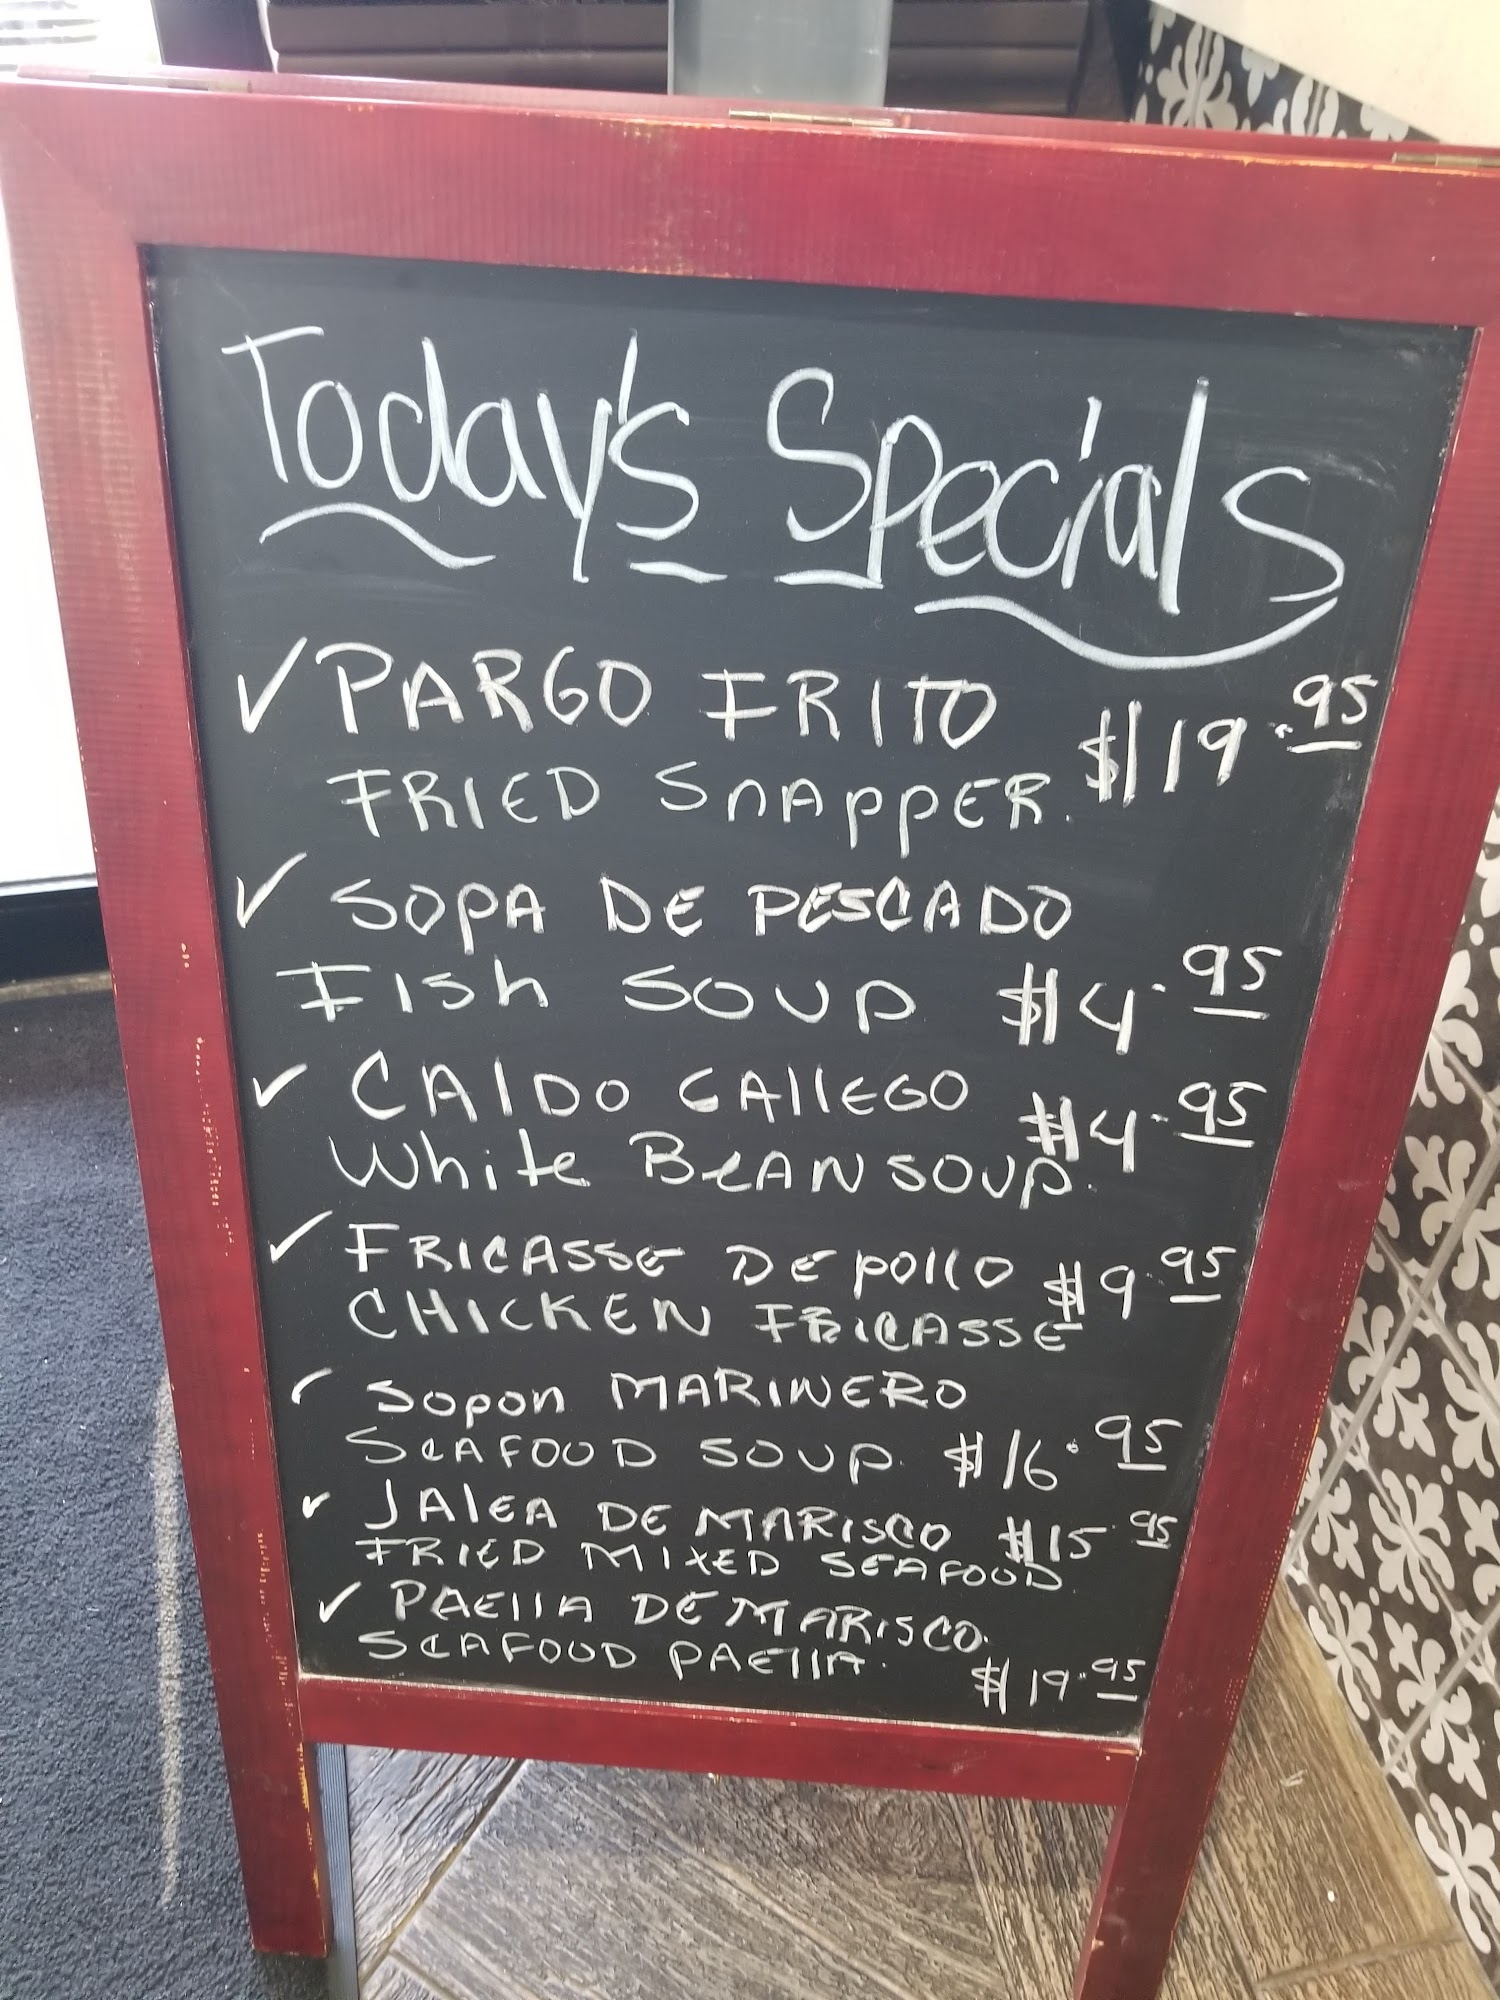 Today's Specials
✓ PARGO FRITO $19.95
FRIED SNAPPER.
✓ SOPA DE PESCADO
FISh SOUP $4.95
✓ CAlDO GAllEGO $4.95
White BEAN SOUP.
✓ FRICASSE DE pollo $9.95
CHICKEN FRICASSE
✓ Sopon MARINERO
SEAFOOD SOUP. $16.95
✓ JAlEA DE MARISCO $15.95
FRIED MIXED SEAFOOD.
✓ PAEllA DE MARISCO.
SEAFOOD PAEllA. $19.95